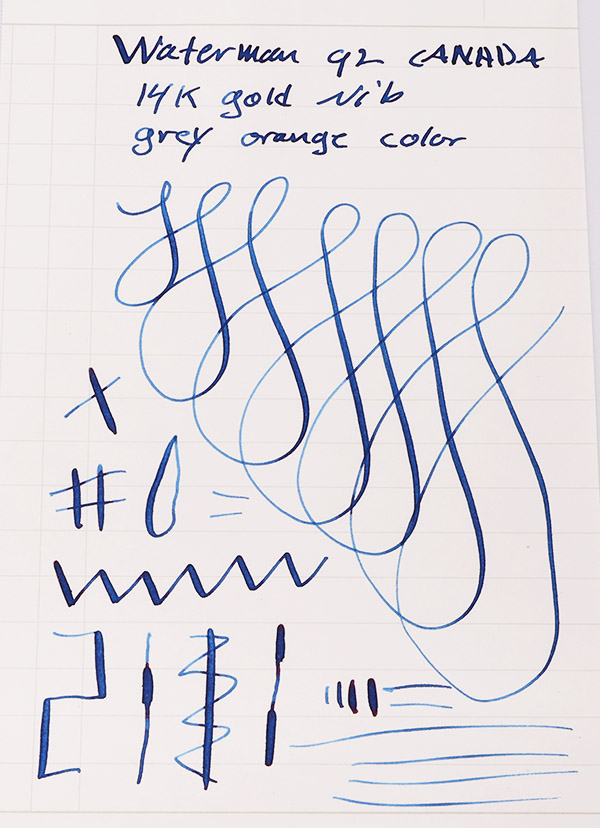 Waterman 92 CANADA
14K gold Nib
grey orange color